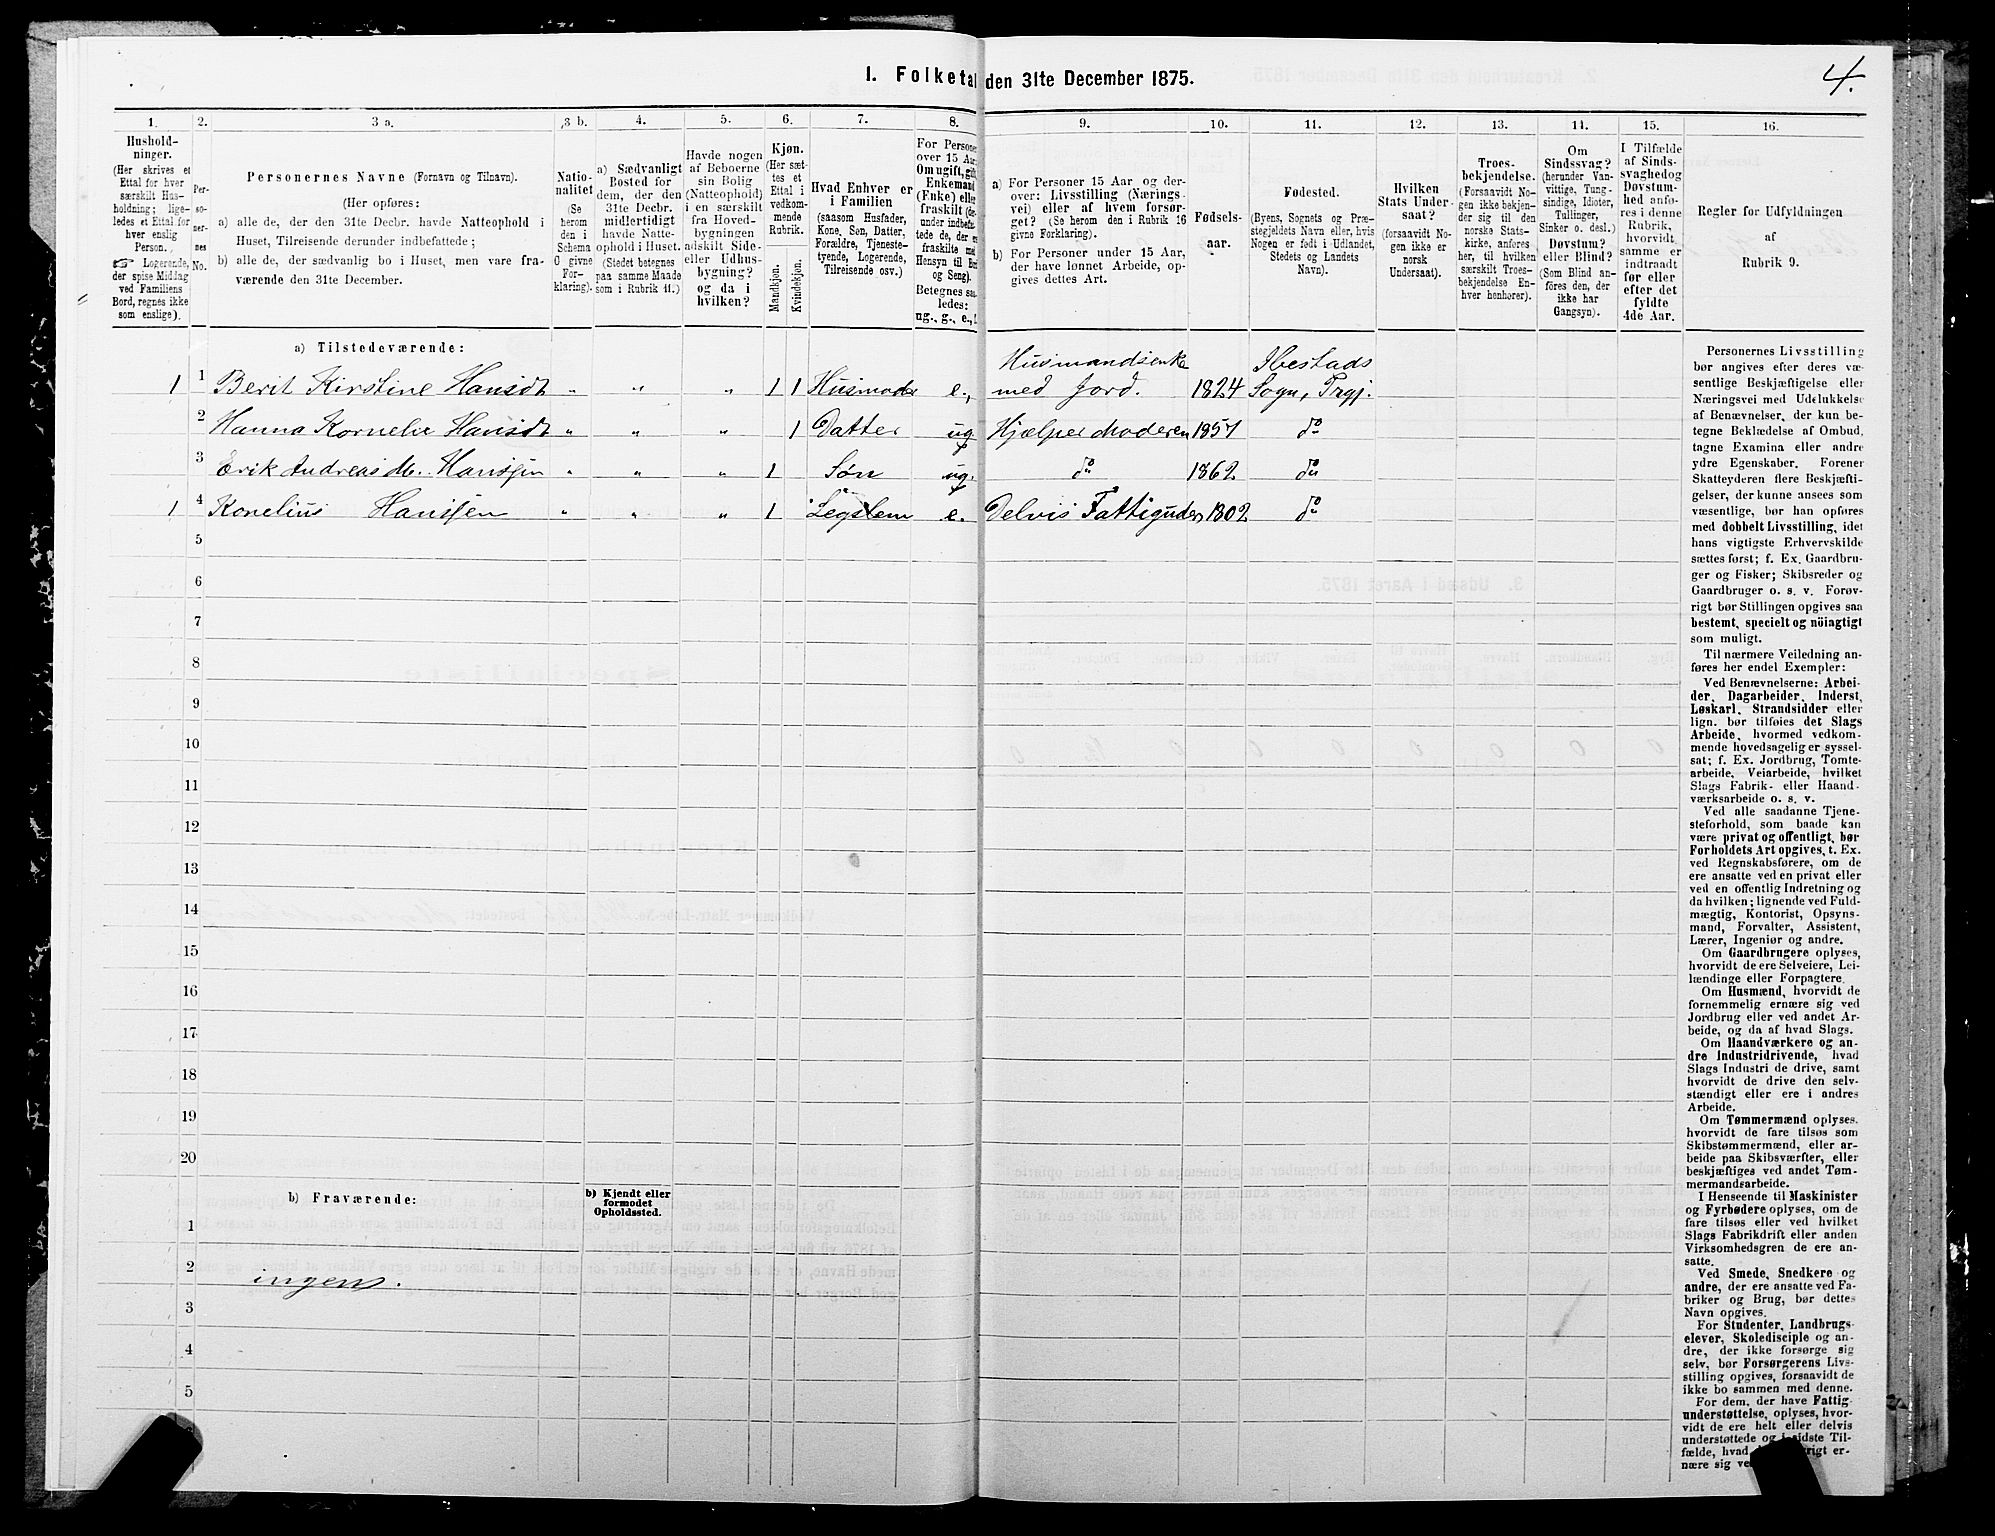 1. Folketal den 31te December 1875.
4.
1.
Hushold-
ninger.
(Her skrives et
Ettal for hver
særskilt Hus-
holdning; lige-
ledes et Ettal for
hver enslig
Person.
☞ Logerende,
der spise Middag
ved Familiens
Bord, regnes ikke
som enslige).
2.
Per-
so-
ner-
nes
No.
3 a.
Personernes Navne (Fornavn og Tilnavn).
(Her opføres:
a) alle de, der den 31te Decbr. havde Natteophold i
Huset, Tilreisende derunder indbefattede;
b) alle de, der sædvanlig bo i Huset, men vare fra-
værende den 31te December.
3 b.
Natio-
nalitet
(Se
herom
den i
Schema
O givne
For-
klaring).
4.
a) Sædvanligt
Bosted for
dem, der den
31te Decbr.
midlertidigt
havde Natte-
ophold i Huset.
(Stedet betegnes
paa samme Maade
som i Rubrik 11.)
5.
Havde nogen
af Beboerne
sin Bolig
(Natteophold)
i en særskilt
fra Hoved-
bygningen
adskilt Side-
eller Udhus-
bygning?
og da i
hvilken?
6.
Kjøn.
(Her sæt-
tes et
Ettal i
vedkom-
mende
Rubrik.
Mandkjøn.
Kvindekjøn.
7.
Hvad Enhver er
i Familien
(saasom Husfader,
Kone, Søn, Datter,
Forældre, Tjeneste-
tyende, Logerende,
Tilreisende osv.)
8.
For Personer
over 15 Aar:
Om ugift, gift,
Enkemand
(Enke) eller
fraskilt
ug., g., e.,
9.
a) For Personer 15 Aar og der-
over: Livsstilling (Nærings-
vei) eller af hvem forsør-
get? (Se herom den i Rubrik 16
givne Forklaring).
b) For Personer under 15 Aar,
der have lønnet Arbeide, op-
gives dettes Art.
10.
Fødsels-
aar.
11.
Fødested.
(Byens, Sognets og Præ-
stegjeldets Navn eller, hvis
Nogen er født i Udlandet,
Stedets og Landets
Navn).
12.
Hvilken
Stats Under-
saat?
(forsaavidt No-
gen ikke er
norsk
Undersaat).
13.
Troes-
bekjendelse.
(Forsaavidt No-
gen ikke bekjen-
der sig til den
norske Stats-
kirke, anføres
her, til hvilken
særskilt Troes-
bekjendelse En-
hver henhører).
14.
Om
Sindssvag?
(herunder Van-
vittige, Tung-
sindige, Idioter,
Tullinger,
Sinker o. desl.)
Døvstum?
eller Blind?
(Som Blind an-
føres den, der
ikke har
Gangsyn).
15.
I Tilfælde
af Sinds-
svaghed og
Døvstum-
hed anfø-
res i denne
Rubrik,
hvorvidt
samme er
indtraadt
før eller
efter det
fyldte
4de Aar.
16.
Regler for Udfyldningen
af
Rubrik 9.
a) Tilstedeværende:
1 1 Berit Kirstine Hansdt " " " 1 1 Husmoder e., Husmandsenke med Jord. 1824 Ibestads Sogn, Prgj.
2 Hanna Kornelie Hansdt " " " 1 Datter ug Hjælper Moderen 1857 do
3 Erik Andreas M. Hanssen " " " 1 Søn ug. do 1862 do
1 4 Konelius Hanssen " " " 1 Legslem e. Delvis Fattigunders 1802 do
5
6
7
8
9
10
11
12
13
14
15
16
17
18
19
20
b) Fraværende:
b) Kjendt eller
formodet
Opholdssted.
1
2 ingen.
3
4
5
Personernes Livsstilling
bør angives efter deres væ-
sentlige Beskjæftigelse eller
Næringsvei med Udelukkelse
af Benævnelser, der kun be-
tegne Beklædelse af Ombud,
tagne Examina eller andre
ydre Egenskaber. Forener
Skatteyderen flere Beskjæfti-
gelser, der kunne ansees som
væsentlige, bør han opføres
med dobbelt Livsstilling, idet
hans vigtigste Erhvervskilde
sættes først; f. Ex. Gaardbru-
ger og Fisker; Skibsreder og
Gaardbruger o. s. v. Forøv-
rigt bør Stillingen opgives saa
bestemt, specielt og nøiagtigt
som muligt.
Til nærmere Veiledning an-
føres her endel Exempler:
Ved Benævnelserne: Arbei-
der, Dagarbeider, Inderst,
Løskarl, Strandsidder eller
lign. bør tilføies det Slags
Arbeide, hvormed vedkom-
mende hovedsagelig er syssel-
sat; f. Ex. Jordbrug, Tomte-
arbeide, Veiarbeide, hvilket
Slags Fabrik- eller Haand-
værksarbeide o. s. v.
Ved alle saadanne Tjene-
steforhold, som baade kan
være privat og offentligt, bør
Forholdets Art opgives, t. Ex.
ved Regnskabsførere, om de
ere ansatte ved en privat eller
ved en offentlig Indretning og
da hvilken; lignende ved Fuld-
mægtig, Kontorist, Opsyns-
mand, Forvalter, Assistent,
Lærer, Ingeniør og andre.
Om Gaardbrugere oplyses,
hvorvidt de ere Selveiere, Lei-
lændinge eller Forpagtere.
Om Husmænd, hvorvidt de
fornemmelig ernære sig ved
Jordbrug eller ved andet Ar-
beide, og da af hvad Slags.
Om Haandværkere og an-
dre Industridrivende, hvad
Slags Industri de drive, samt
hvorvidt de drive den selv-
stændigt eller ere i andres
Arbeide.
Om Tømmermænd oplyses,
hvorvidt de fare tilsøs som
Skibstømmermænd, eller ar-
beide paa Skibsværfter, eller
beskjæftiges ved andet Tøm-
mermandsarbeide.
I Henseende til Maskinister
og Fyrbødere oplyses, om de
fare tilsøs eller ved hvilket
Slags Fabrikdrift eller anden
Virksomhedsgren de ere an-
satte.
Ved Smede, Snedkere og
andre, der ere ansatte ved Fa-
briker og Brug, bør dettes
Navn opgives.
For Studenter, Landbrugs-
elever, Skoledisciple og an-
dre, der ikke forsørge sig
selv, bør Forsørgerens Livs-
stilling opgives, forsaavidt de
ikke bo sammen med denne.
For dem, der have Fattig-
understøttelse, oplyses, hvor-
vidt de ere helt eller delvis
understøttede og i sidste Til-
fælde, hvad
nære sig